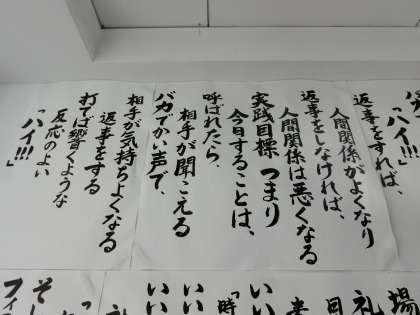 「ハイ!!!」
返事をすれば、
人間関係がよくなり
返事をしなければ、
人間関係は悪くなる
実践目標 つまり
今日することは、
呼ばれたら、
相手が聞こえる
バカでかい声で、
相手が気持ちよくなる
返事をする
打てば響くような
反応のよい
「ハイ!!!」
場
礼
目
いい
「時
いい
いい
礼
そし